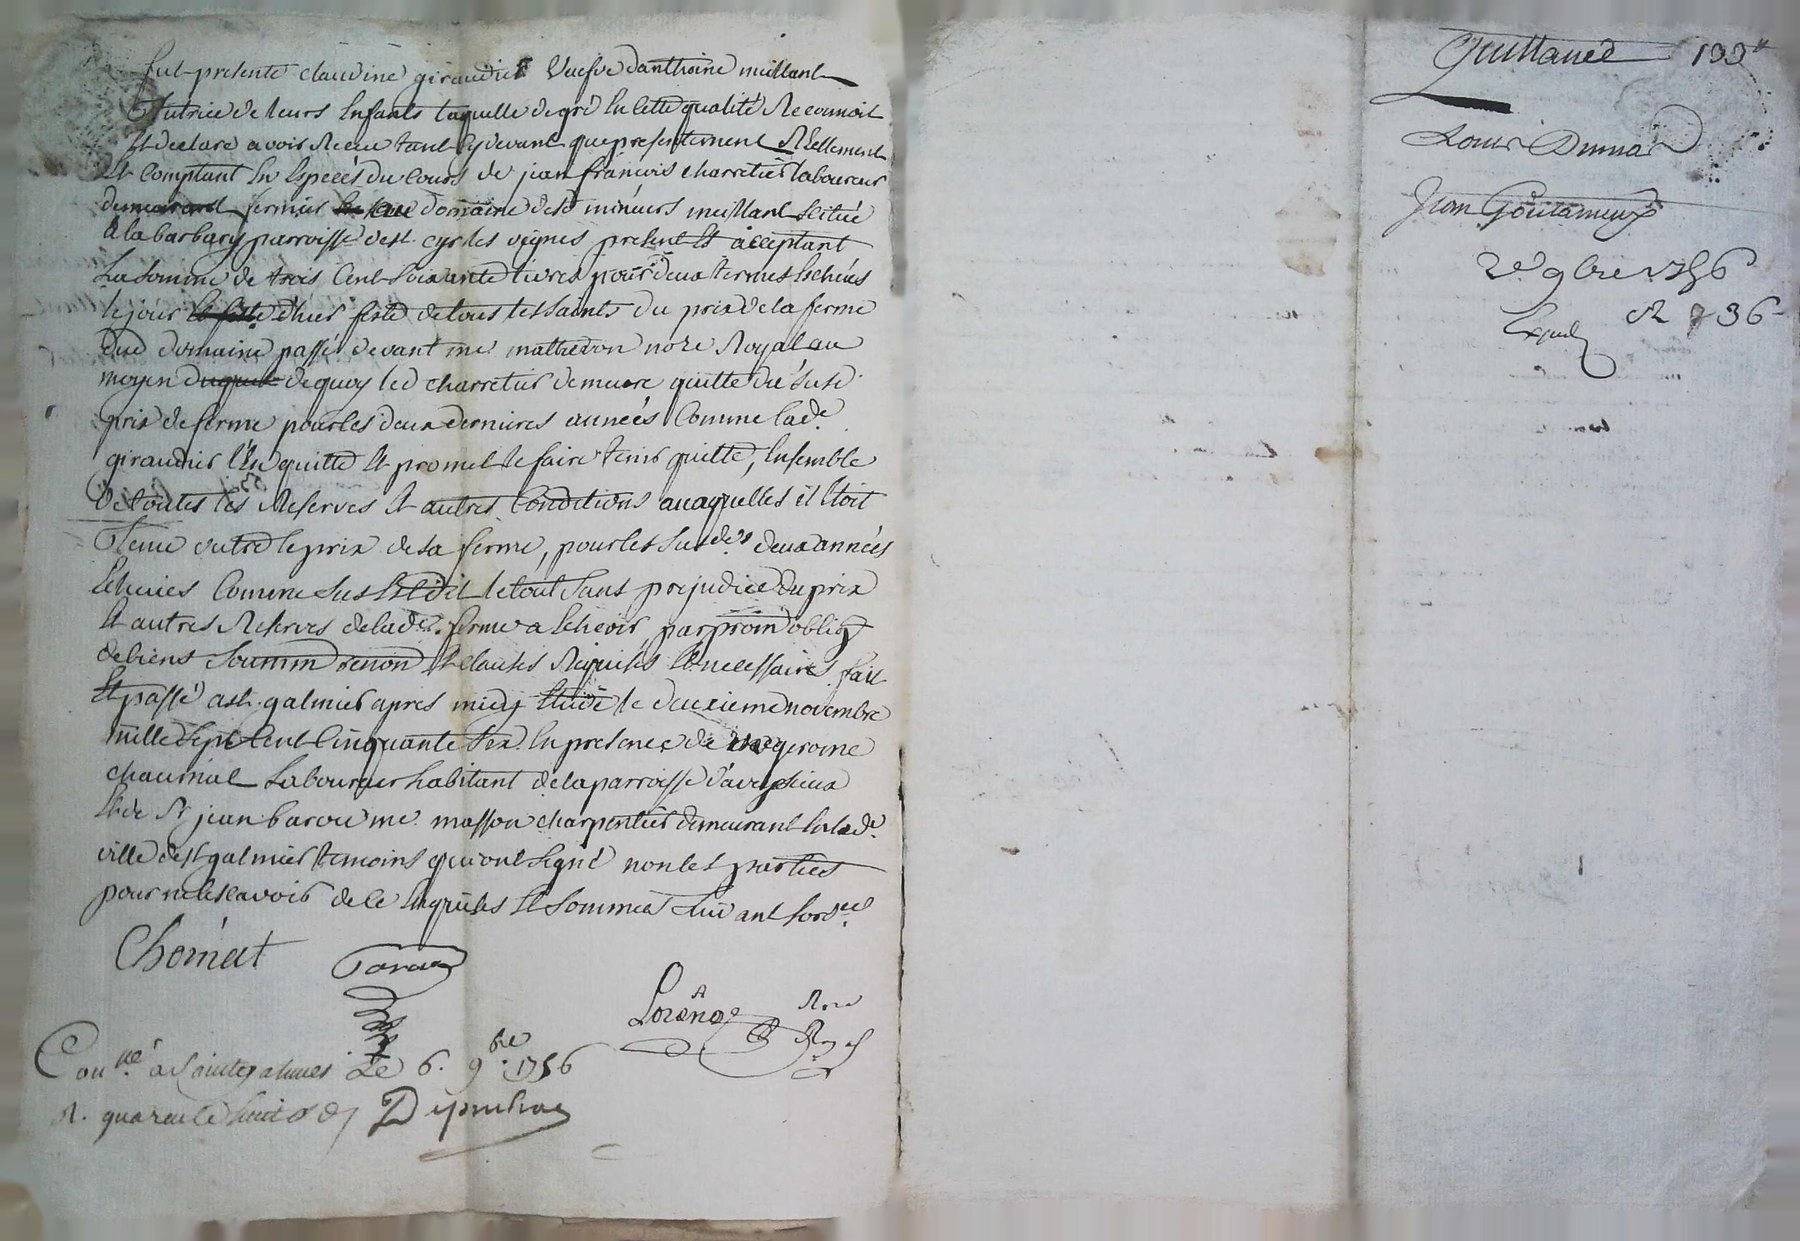 fut presente claudine giraudier vuefve danthoine meillant
tutrice de leurs enfants laquelle de gré en cette qualité Reconnoit
et declare avoir Receu tant cy devant que presentement Réellement
et comptant en especes du cours de jean françois charretier laboureur
fermier domaine desd mineurs meillant scitué
a la barbary parroisse de st. cyr les vignes present et acceptant
La somme de trois cent soixante livres pour deux termes echeües
le jour d'hier feste de tous les saints du prix de la ferme
dud domaine passé devant me mathevon nore Royal au
moyen de quoy led charretier demeure quitte du susd
prix de ferme pour les deux dernieres années comme lade
giraudier l'en quitte et promet le faire tenir quitte, ensemble
de toutes les Reserves et autres conditions auxquelles il etoit
tenu outre le prix de sa ferme, pour les susdes deux années
echeües comme sus est dit le tout sans prejudice du prix
et autres Reserves de lade. ferme a echeoir par prom oblig
de biens soumm renon et clauses Requises et necessaires fait
et passé a st. galmier apres midy etude le deuxieme novembre
mille sept cent cinquante six en presence de gerome
chaumat Laboureur habitant de la parroisse d'aveysieux
et de Sr jean me masson charpentier demeurant en lade.
ville de st galmier temoins qui ont signé non les parties
pour ne le scavoir de ce enquises et sommées suivant lord
Chomat
Nore
Royal
Conlé à Saintgalmier Le 6. 9bre 1756
R. quarante huit s
Quittance 199
Louis
Jean
2e 9bre 1756